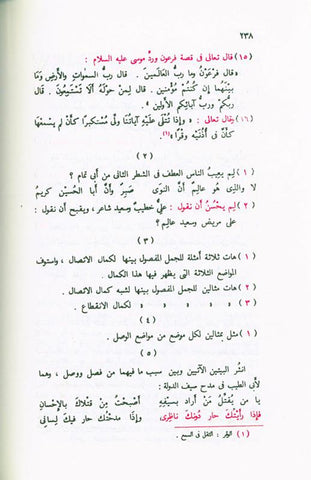 ٢٣٨
(١٥) قال تعالى فى قصة فرعون وردّ موسى عليه السلام :
«قال فرْعَوْنُ وما ربُّ العالَمِينَ . قال ربُّ السمٰواتِ والأرْضِ وَمَا
بيْنَهُما إن كُنْتُمْ مُوقنِين . قال لِمنْ حَوْلَهُ ألَا تَسْتَمِعُونَ . قال
ربُّكمْ وربُّ آبائكم الأولين » .
(١٦) وقال تعالى : « وإذا تُتْلَى عَلَيْهِ آيَاتُنَا ولَّى مُسْتَكبِرًا كأن لم يسْمَعْهَا
كأنَّ فى أذنَيْهِ وقْرًا »(١).
(٢)
(١) لِم يعِيبُ الناس العطف فى الشطر الثانى من أبى تمام ؟
لا والذى هو عالِمٌ أنَّ النوَى صَبِرٌ وأنَّ أبا الحُسَيْن كريمُ
(٢) لم يحْسُنُ أن نقول : علىٌّ خطيبٌ وسعيد شاعر ، ويقبح أن نقول :
على مريض وسعيد عالِم ؟
(٣)
(١) هات ثلاثة أمثلة للجمل المفصول بينها لكمال الاتصال ، واستوف
المواضع الثلاثة التى يظهر فيها هذا الكمال .
(٢) هات مثالين للجمل المفصول بينها لشبه كمال الاتصال .
(٣) » » » » » لكمال الانقطاع .
(٤)
(١) مثل بمثالين لكل موضع من مواضع الوصل .
(٥)
انثُر البيتين الآتيين وبين سبب ما فيهما من فصل ووصل ، وهما
لأبى الطيب فى مدح سيف الدولة :
يا مَنْ يُقَتِّلُ مَنْ أراد بسَيْفِهِ أصْبَحْتُ مِنْ قتلاكَ بالإحْسانِ
فإذا رأيْتكَ حار دُونكَ ناظرى وإذا مدحْتك حار فيكَ لِسانى
(١) الوقر : الثقل فى السمع .